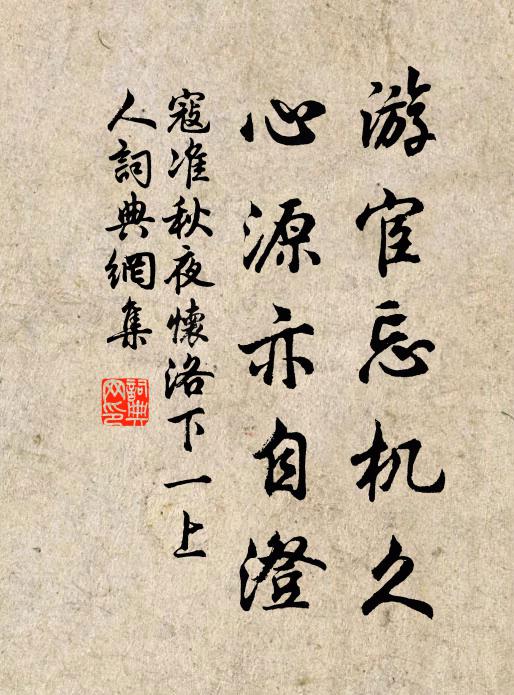 游宦忘机久
心源亦自澄
寇准秋夜懷洛下一上
人詞典網集
詞典
网印